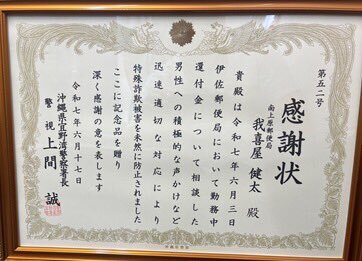 第五二号
感謝状
南上原郵便局
我喜屋 健太 殿
貴殿は令和七年六月三日
伊佐郵便局において勤務中
還付金について相談した
男性への積極的な声かけなど
迅速適切な対応により
特殊詐欺被害を未然に防止されました
ここに記念品を贈り
深く感謝の意を表します
令和七年六月十七日
沖縄県宜野湾警察署長
警視 上間 誠